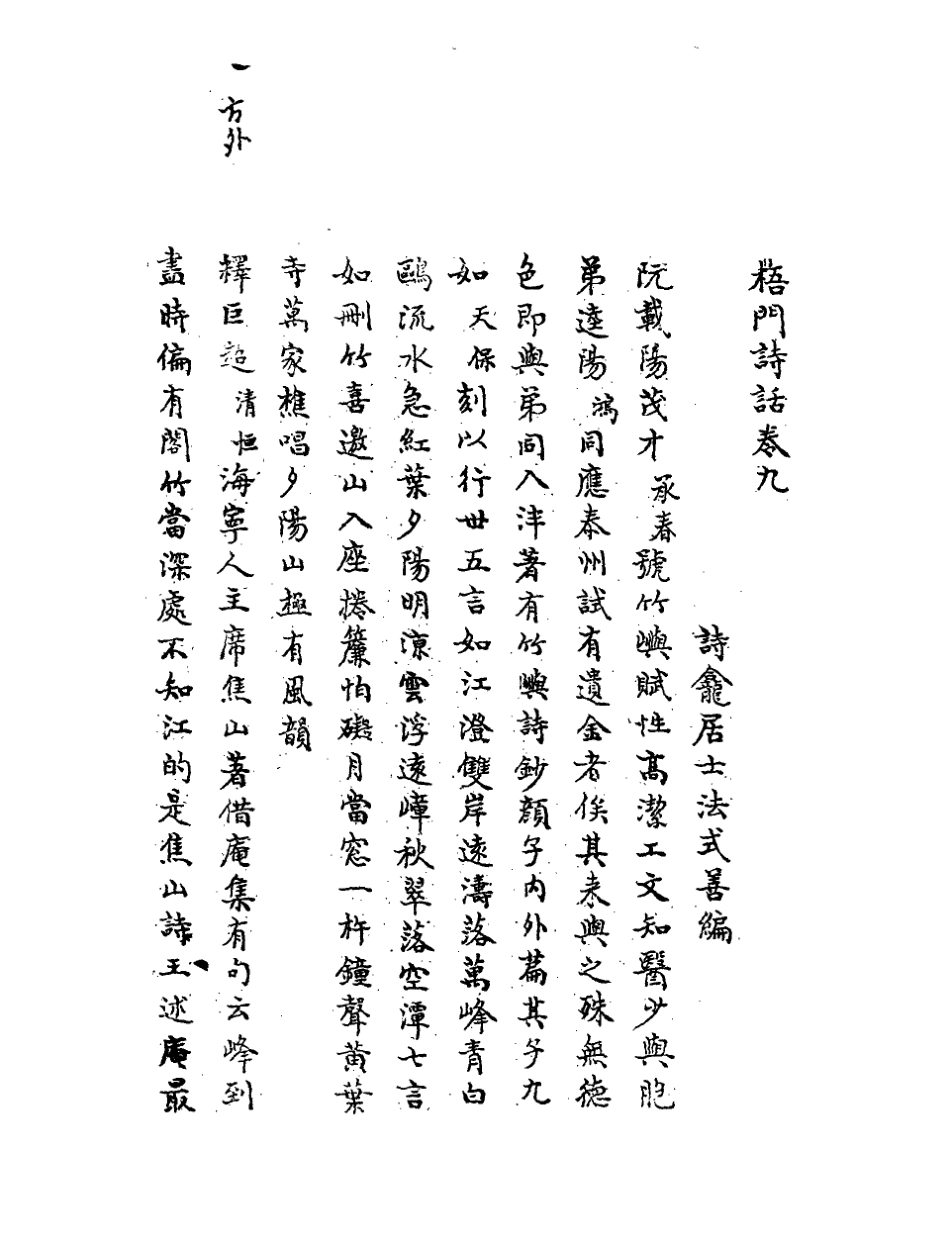 梧門詩話卷九
詩龕居士法式善編
阮載陽茂才承春號竹嶼賦性高潔工文知醫少與胞
弟逵陽鴻同應泰州試有遺金者俟其来與之殊無德
色即與弟同入泮著有竹嶼詩鈔顏子内外篇其子九
如天保刻以行世五言如江澄雙岸遠濤落萬峰青白
鷗流水急紅葉夕陽明凉雲浮遠嶂秋翠落空潭七言
如刪竹喜邀山入座捲簾怕礙月當窓一杵鐘聲黃葉
寺萬家樵唱夕陽山極有風韻
一方外
釋巨超清恒海寧人主席焦山著借庵集有句云峰到
盡時偏有閣竹當深處不知江的是焦山詩王述庵最